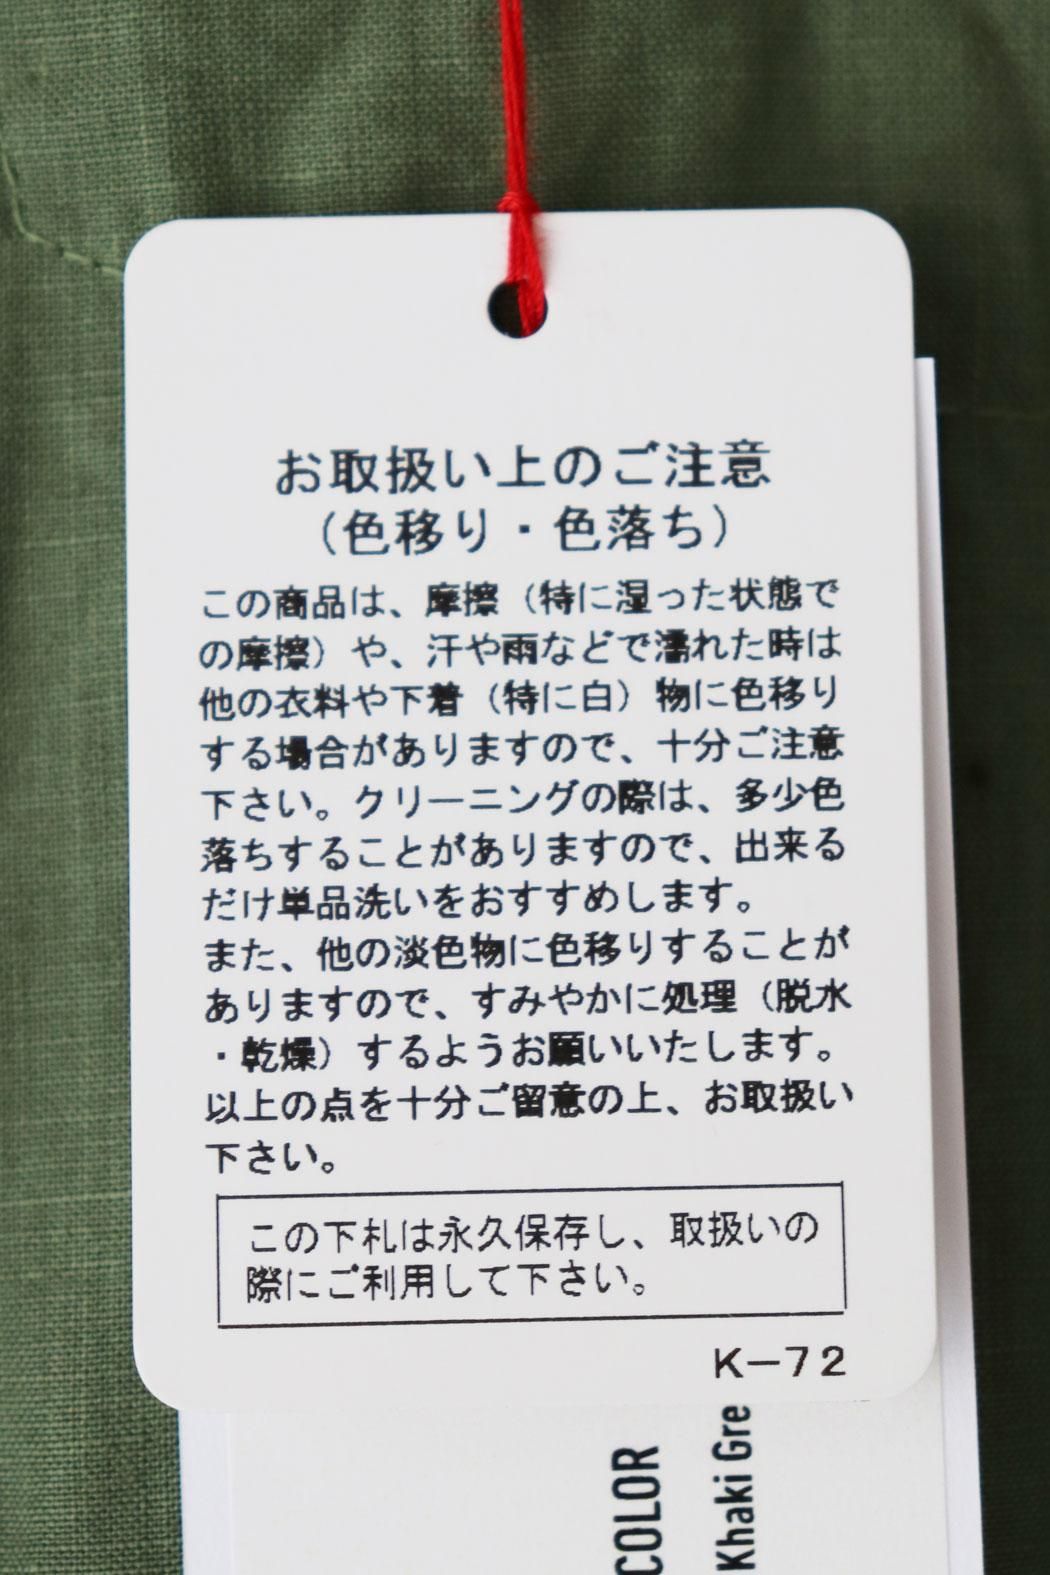 お取扱い上のご注意
（色移り・色落ち）
この商品は、摩擦（特に湿った状態で
の摩擦）や、汗や雨などで濡れた時は
他の衣料や下着（特に白）物に色移り
する場合がありますので、十分ご注意
下さい。クリーニングの際は、多少色
落ちすることがありますので、出来る
だけ単品洗いをおすすめします。
また、他の淡色物に色移りすることが
ありますので、すみやかに処理（脱水
・乾燥）するようお願いいたします。
以上の点を十分ご留意の上、お取扱い
下さい。
この下札は永久保存し、取扱いの
際にご利用して下さい。
K－72
COLOR
Khaki Gre